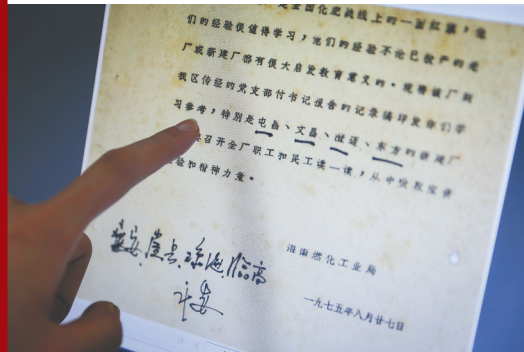 是全国化肥战线上的一面红旗，他
们的经验很值得学习，他们的经验不论已投产的老
厂或新建厂都有很大启发教育意义的。现将该厂到
我区传经的党支部付书记报告的记录稿印发你们学
习参考，特别是屯昌、文昌、澄迈、东方的新建厂
召开全厂职工和民工读一读，从中吸取宝贵
验和精神力量。
琼海、临高
海南燃化工业局
一九七五年八月廿七日